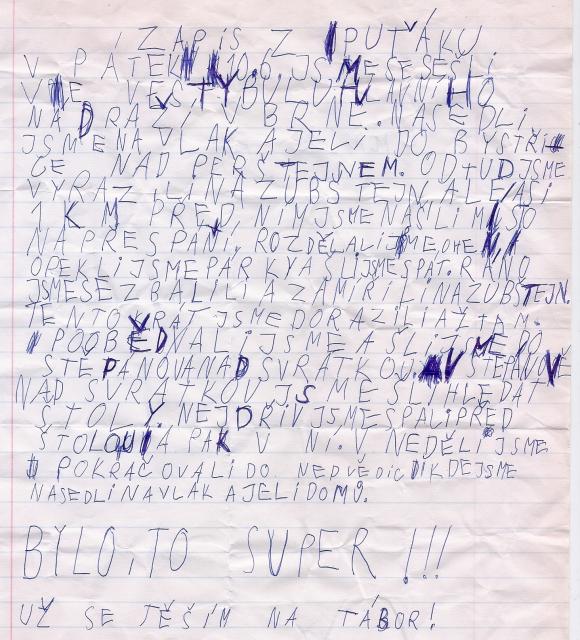 ZÁPIS Z PUŤÁKU
V PÁTEK 10.6. JSME SE SEŠLI
VE VESTYBULU HLAVNÍHO
NÁDRAŽÍ V BRNĚ. NASEDLI
JSME NA VLAK A JELI DO BYSTŘI
CE NAD PERŠTEJNEM. ODTUD JSME
VYRAZILI NA ZUBŠTEJN, ALE ASI
1 KM PŘED NÍM JSME NAŠLI MÍSTO
NA PŘESPANÍ, ROZDĚLALI JSME OHEŇ,
OPEKLI JSME PÁRKY A ŠLI JSME SPÁT. RÁNO
JSME SE ZBALILI A ZAMÍŘILI NA ZUBŠTEJN.
TENTOKRÁT JSME DORAZILI AŽ TAM.
POOBĚDVALI JSME A ŠLI JSME DO
ŠTEPÁNOVA NAD SVRATKOU. V ŠTEPÁNOVĚ
NAD SVRATKOU JSME ŠLI HLEDAT
ŠTOLY. NEJDŘÍV JSME SPALI PŘED
ŠTOLOU A PAK V NÍ. V NEDĚLI JSME
POKRAČOVALI DO NEDVĚDIC KDE JSME
NASEDLI NA VLAK A JELI DOMŮ.
BYLO TO SUPER!!!
UŽ SE TĚŠÍM NA TÁBOR!